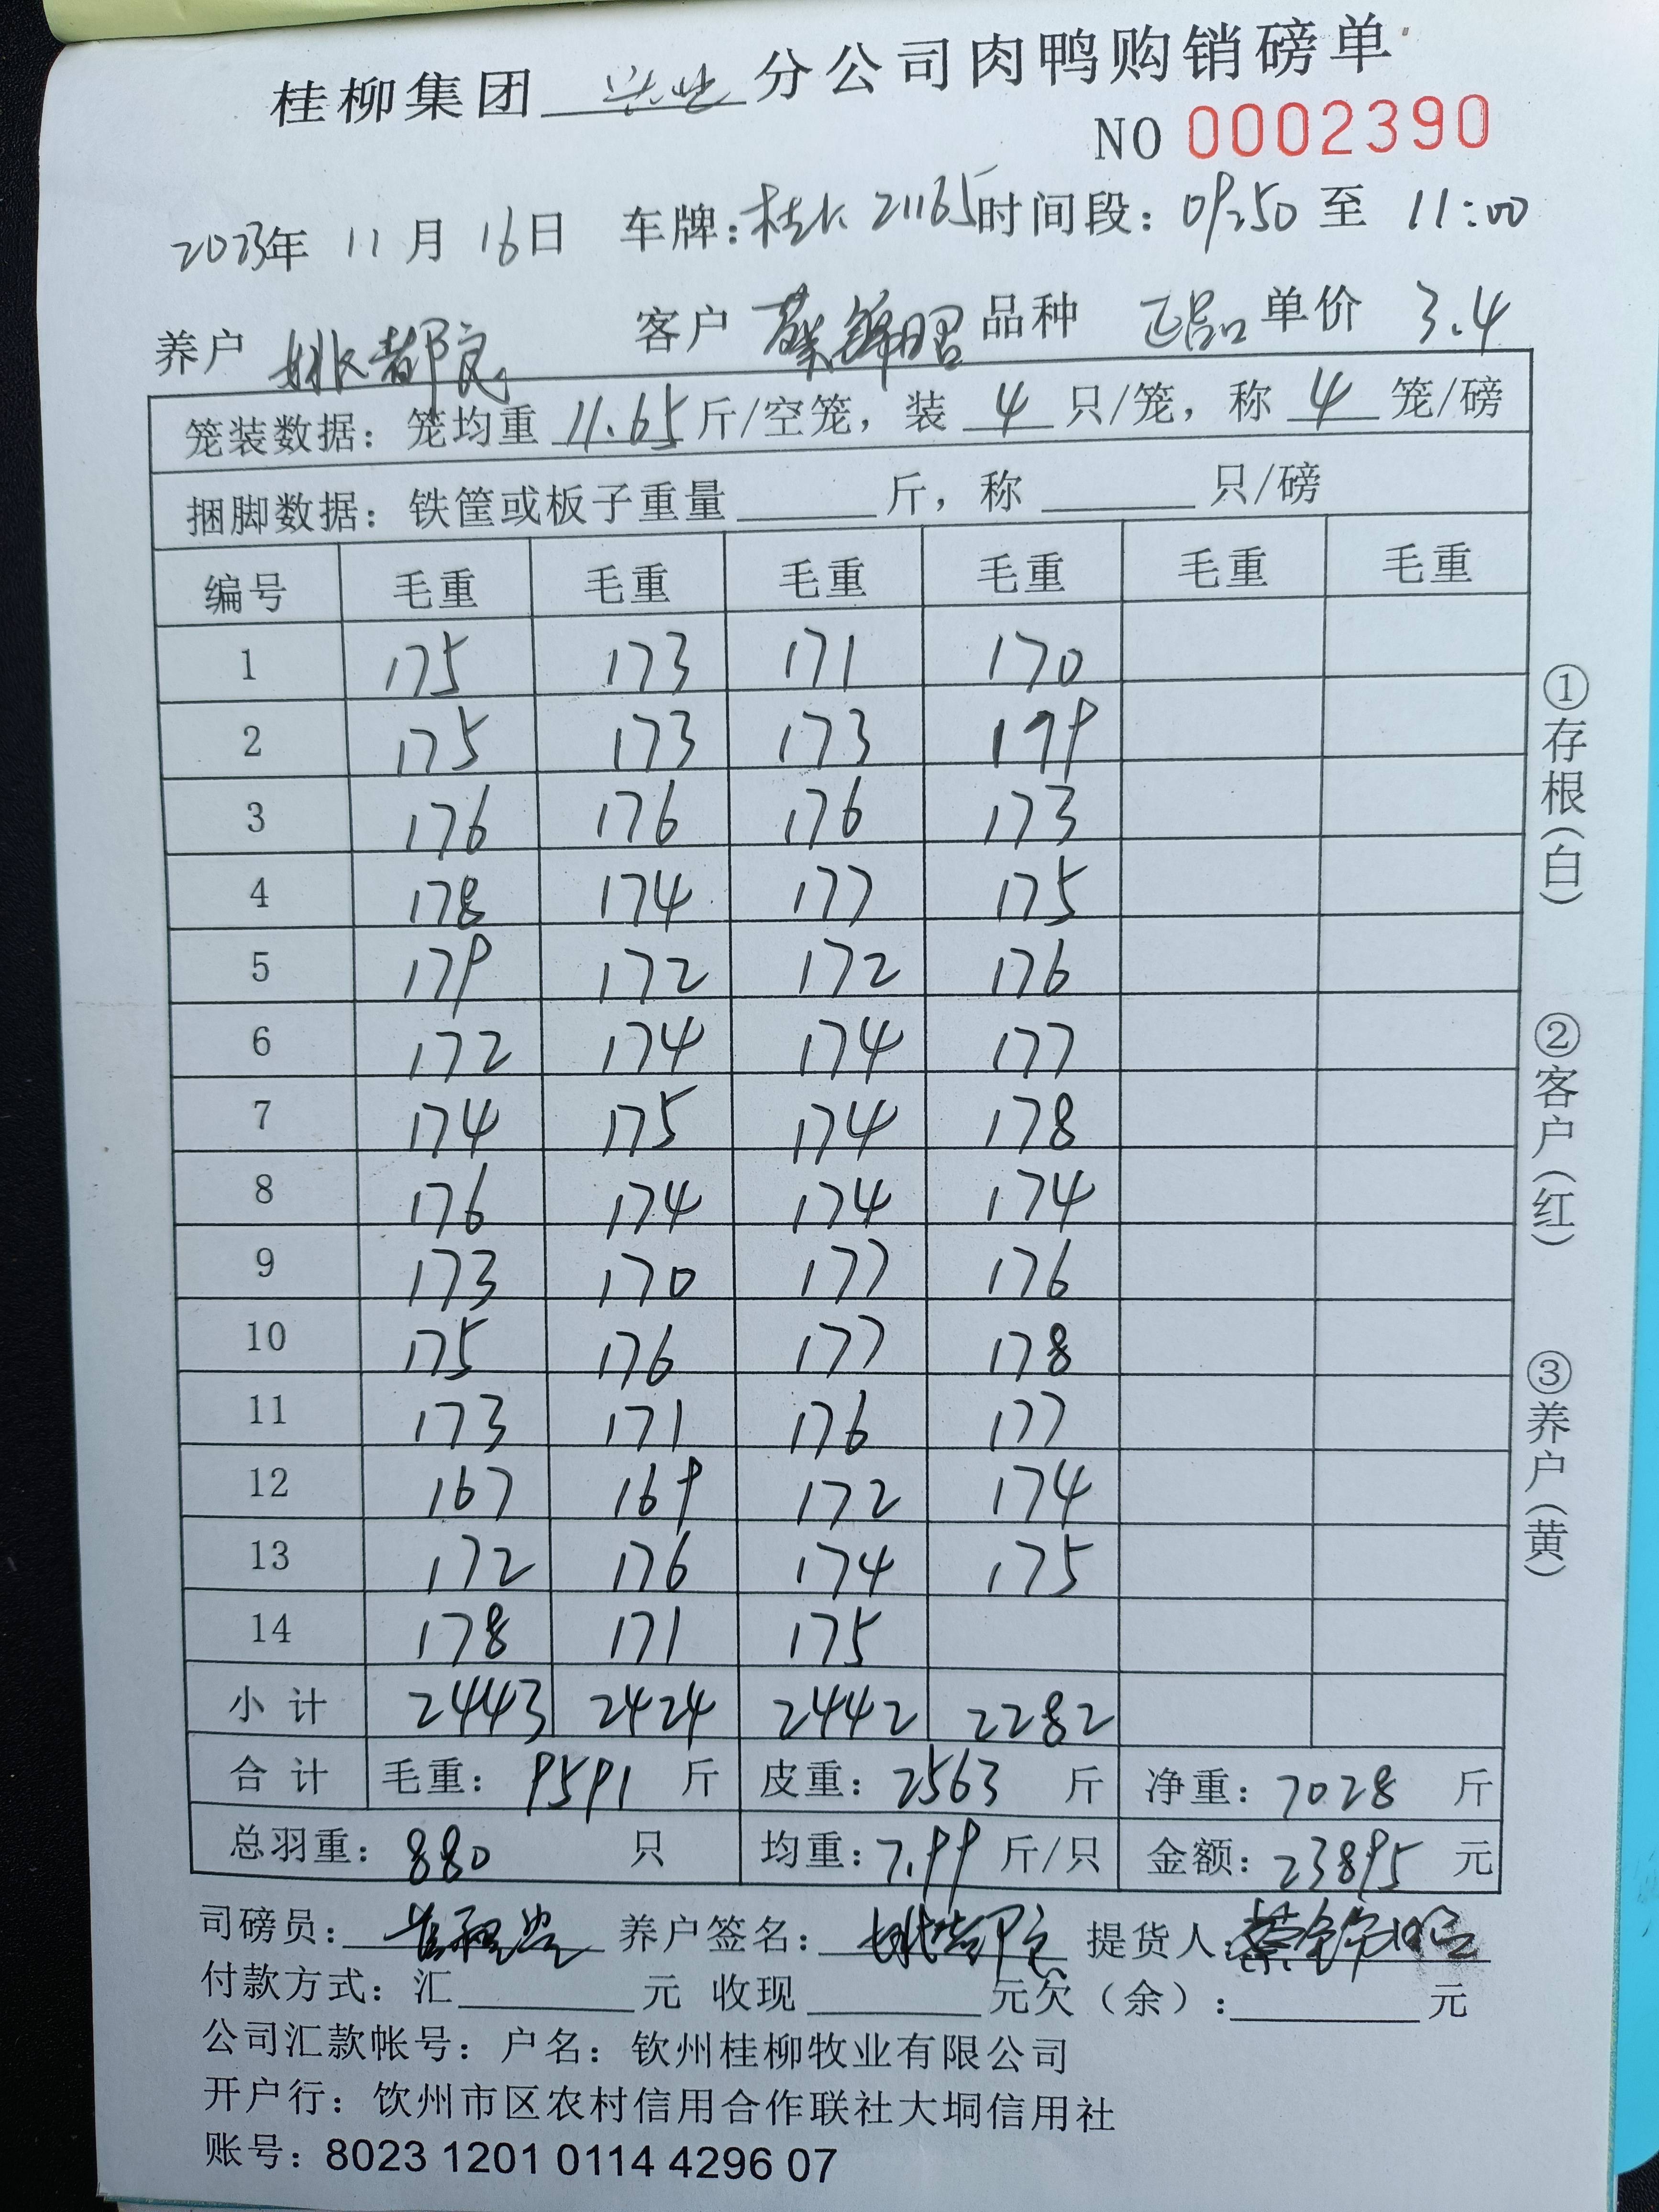 桂柳集团 兴业 分公司肉鸭购销磅单
NO 0002390
2023年 11月 16日 车牌:桂K 21165 时间段: 09:50 至 11:00
养户 姚都良 客户 蔡锦昭 品种 正品 单价 3.4
笼装数据: 笼均重 11.65 斤/空笼, 装 4 只/笼, 称 4 笼/磅
捆脚数据: 铁筐或板子重量 斤, 称 只/磅
编号 毛重 毛重 毛重 毛重 毛重 毛重
1 175 173 171 170
2 175 173 173 179
3 176 176 176 173
4 178 174 177 175
5 179 172 172 176
6 172 174 174 177
7 174 175 174 178
8 176 174 174 174
9 173 170 177 176
10 175 176 177 178
11 173 171 176 177
12 167 169 172 174
13 172 176 174 175
14 178 171 175
小计 2443 2424 2442 2282
合计 毛重: 9591 斤 皮重: 2563 斤 净重: 7028 斤
总羽重: 880 只 均重: 7.99 斤/只 金额: 23895 元
司磅员: 养户签名: 姚都良 提货人: 蔡锦昭
付款方式: 汇 元 收现 元欠(余): 元
公司汇款帐号: 户名: 钦州桂柳牧业有限公司
开户行: 钦州市区农村信用合作联社大垌信用社
账号: 8023 1201 0114 4296 07
①存根(白)
②客户(红)
③养户(黄)